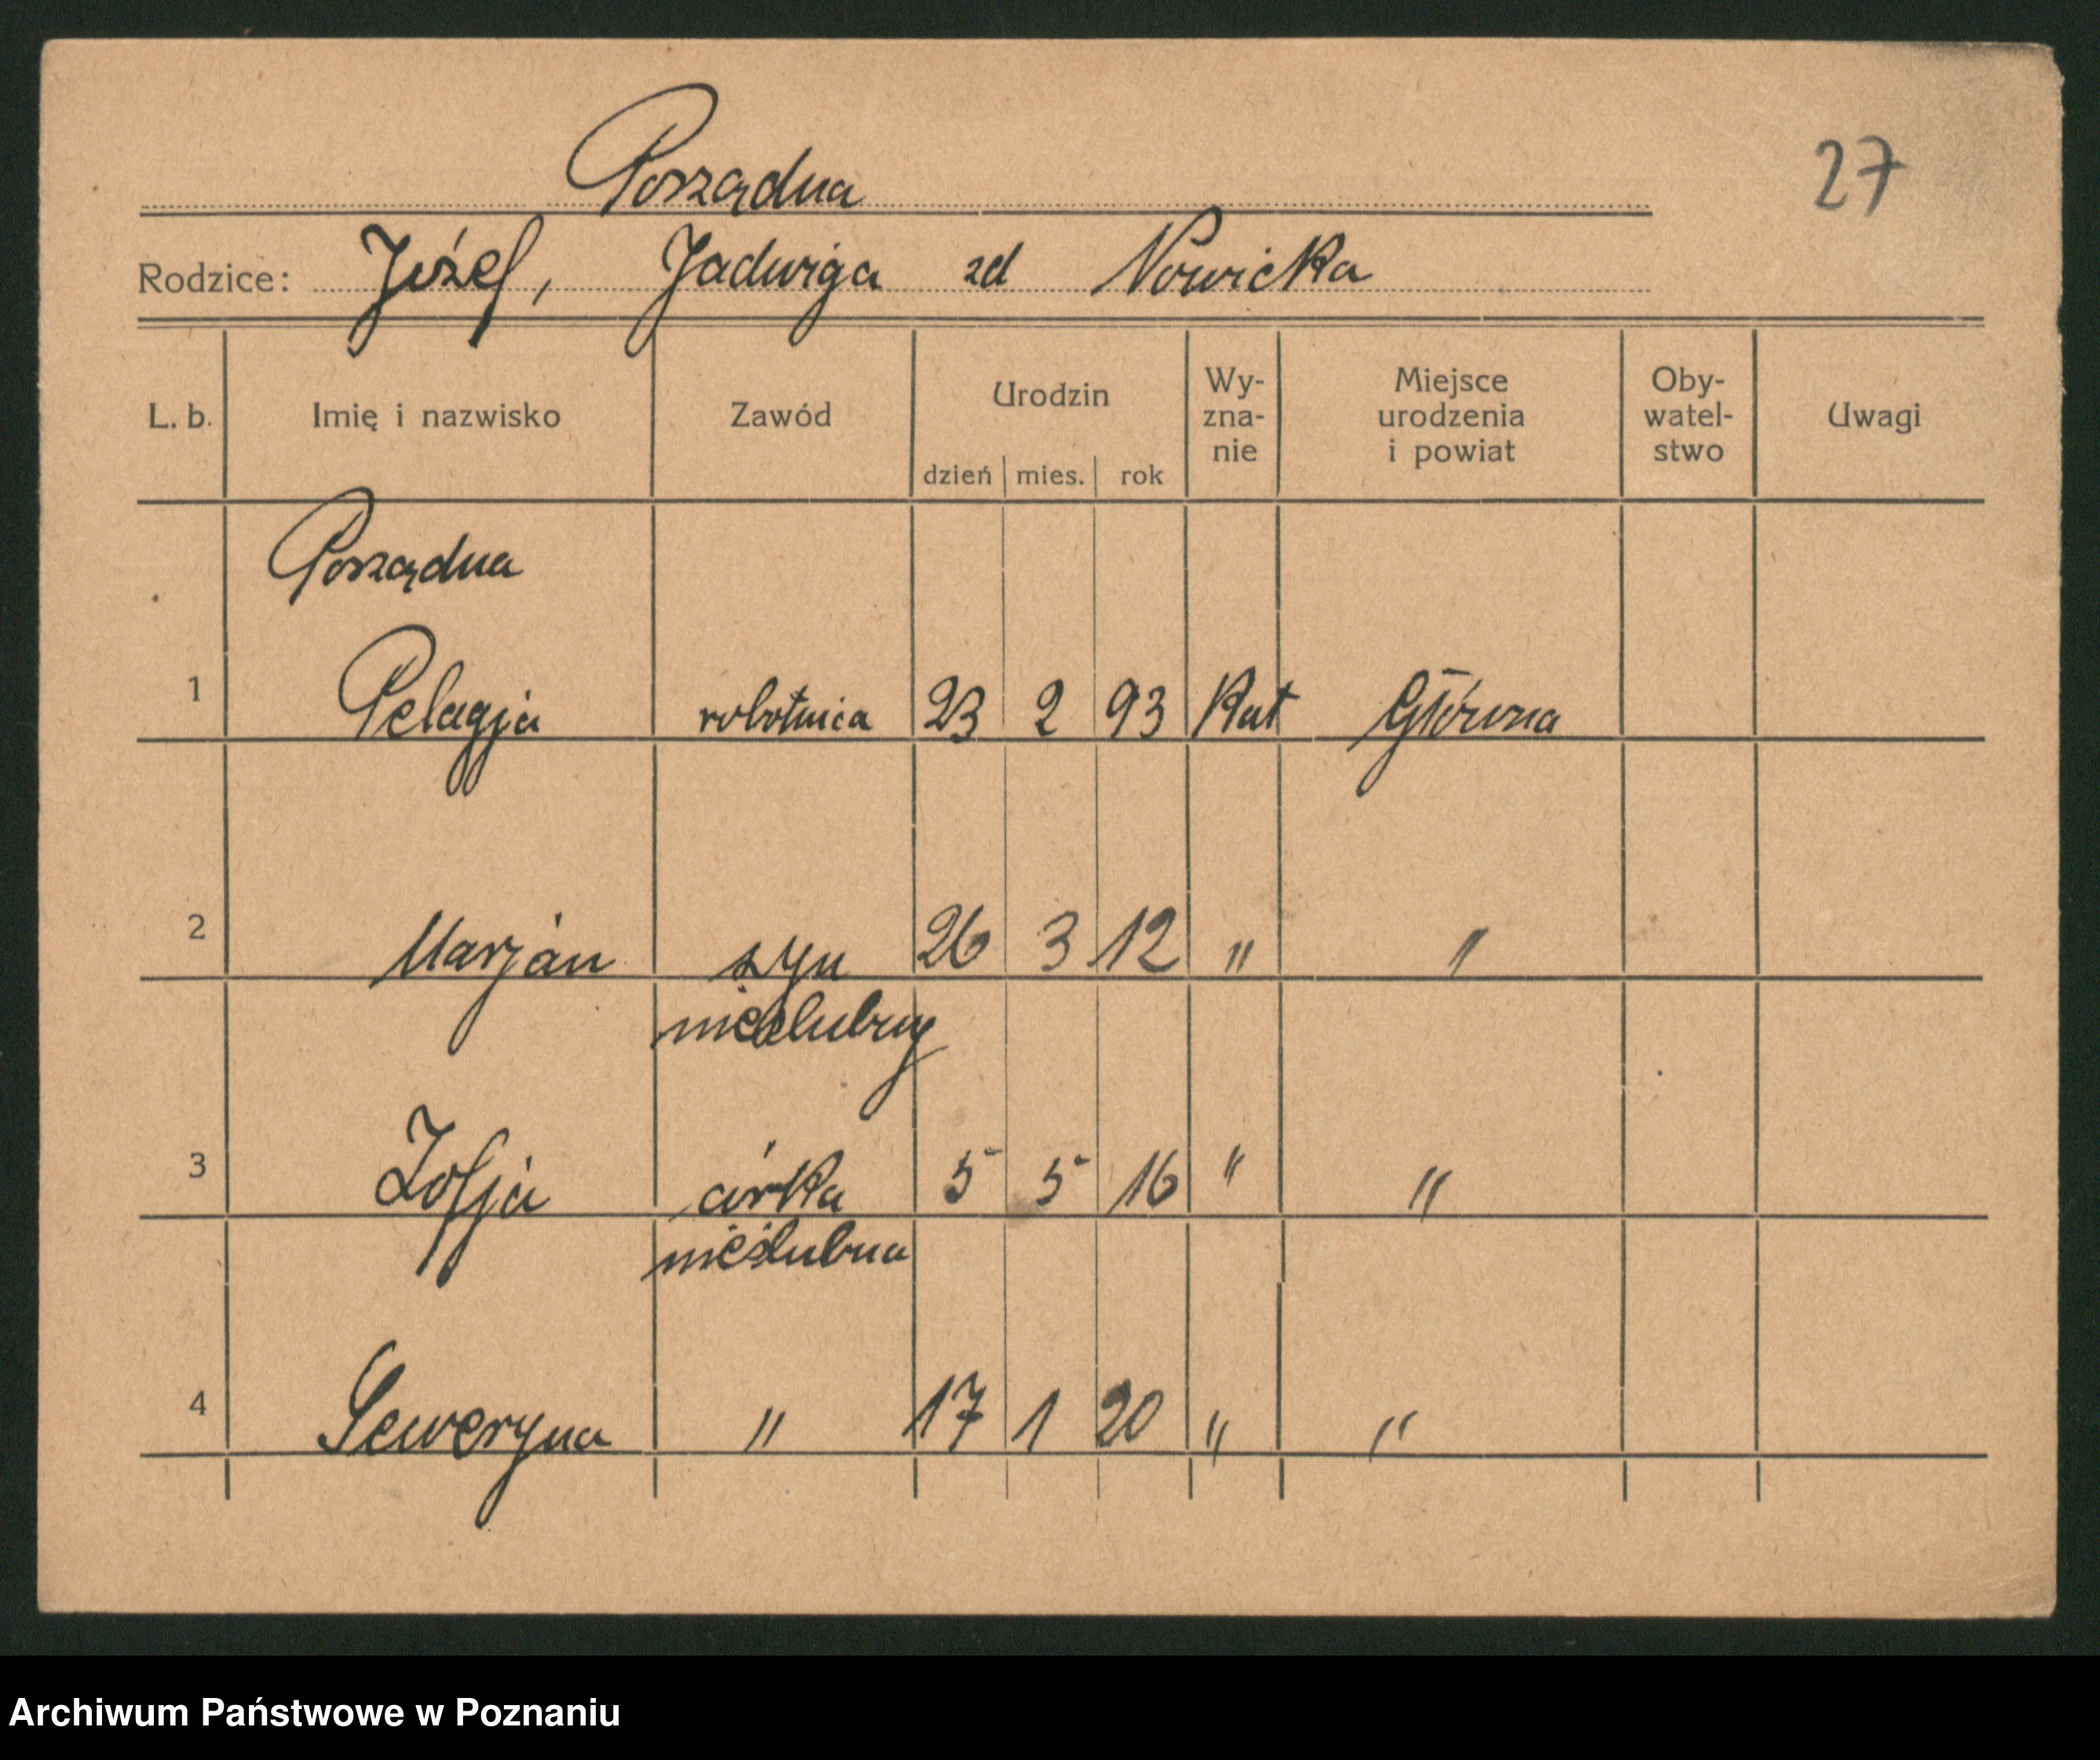 27
Porządna
Rodzice: Józef, Jadwiga zd Nowicka
L. b. Imię i nazwisko Zawód Urodzin dzień mies. rok Wy-zna-nie Miejsce urodzenia i powiat Oby-watel-stwo Uwagi
Porządna
1 Pelagja robotnica 23 2 93 Kat Główna
2 Marjan syn 26 3 12 " "
nieślubny
3 Zofja córka 5 5 16 " "
nieślubna
4 Seweryna " 17 1 20 " "
Archiwum Państwowe w Poznaniu